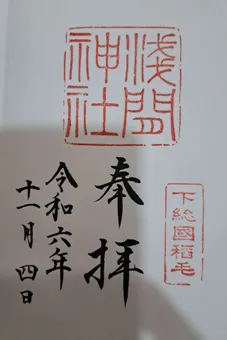 奉拝
下総國稲毛
浅間神社
令和六年
十一月四日